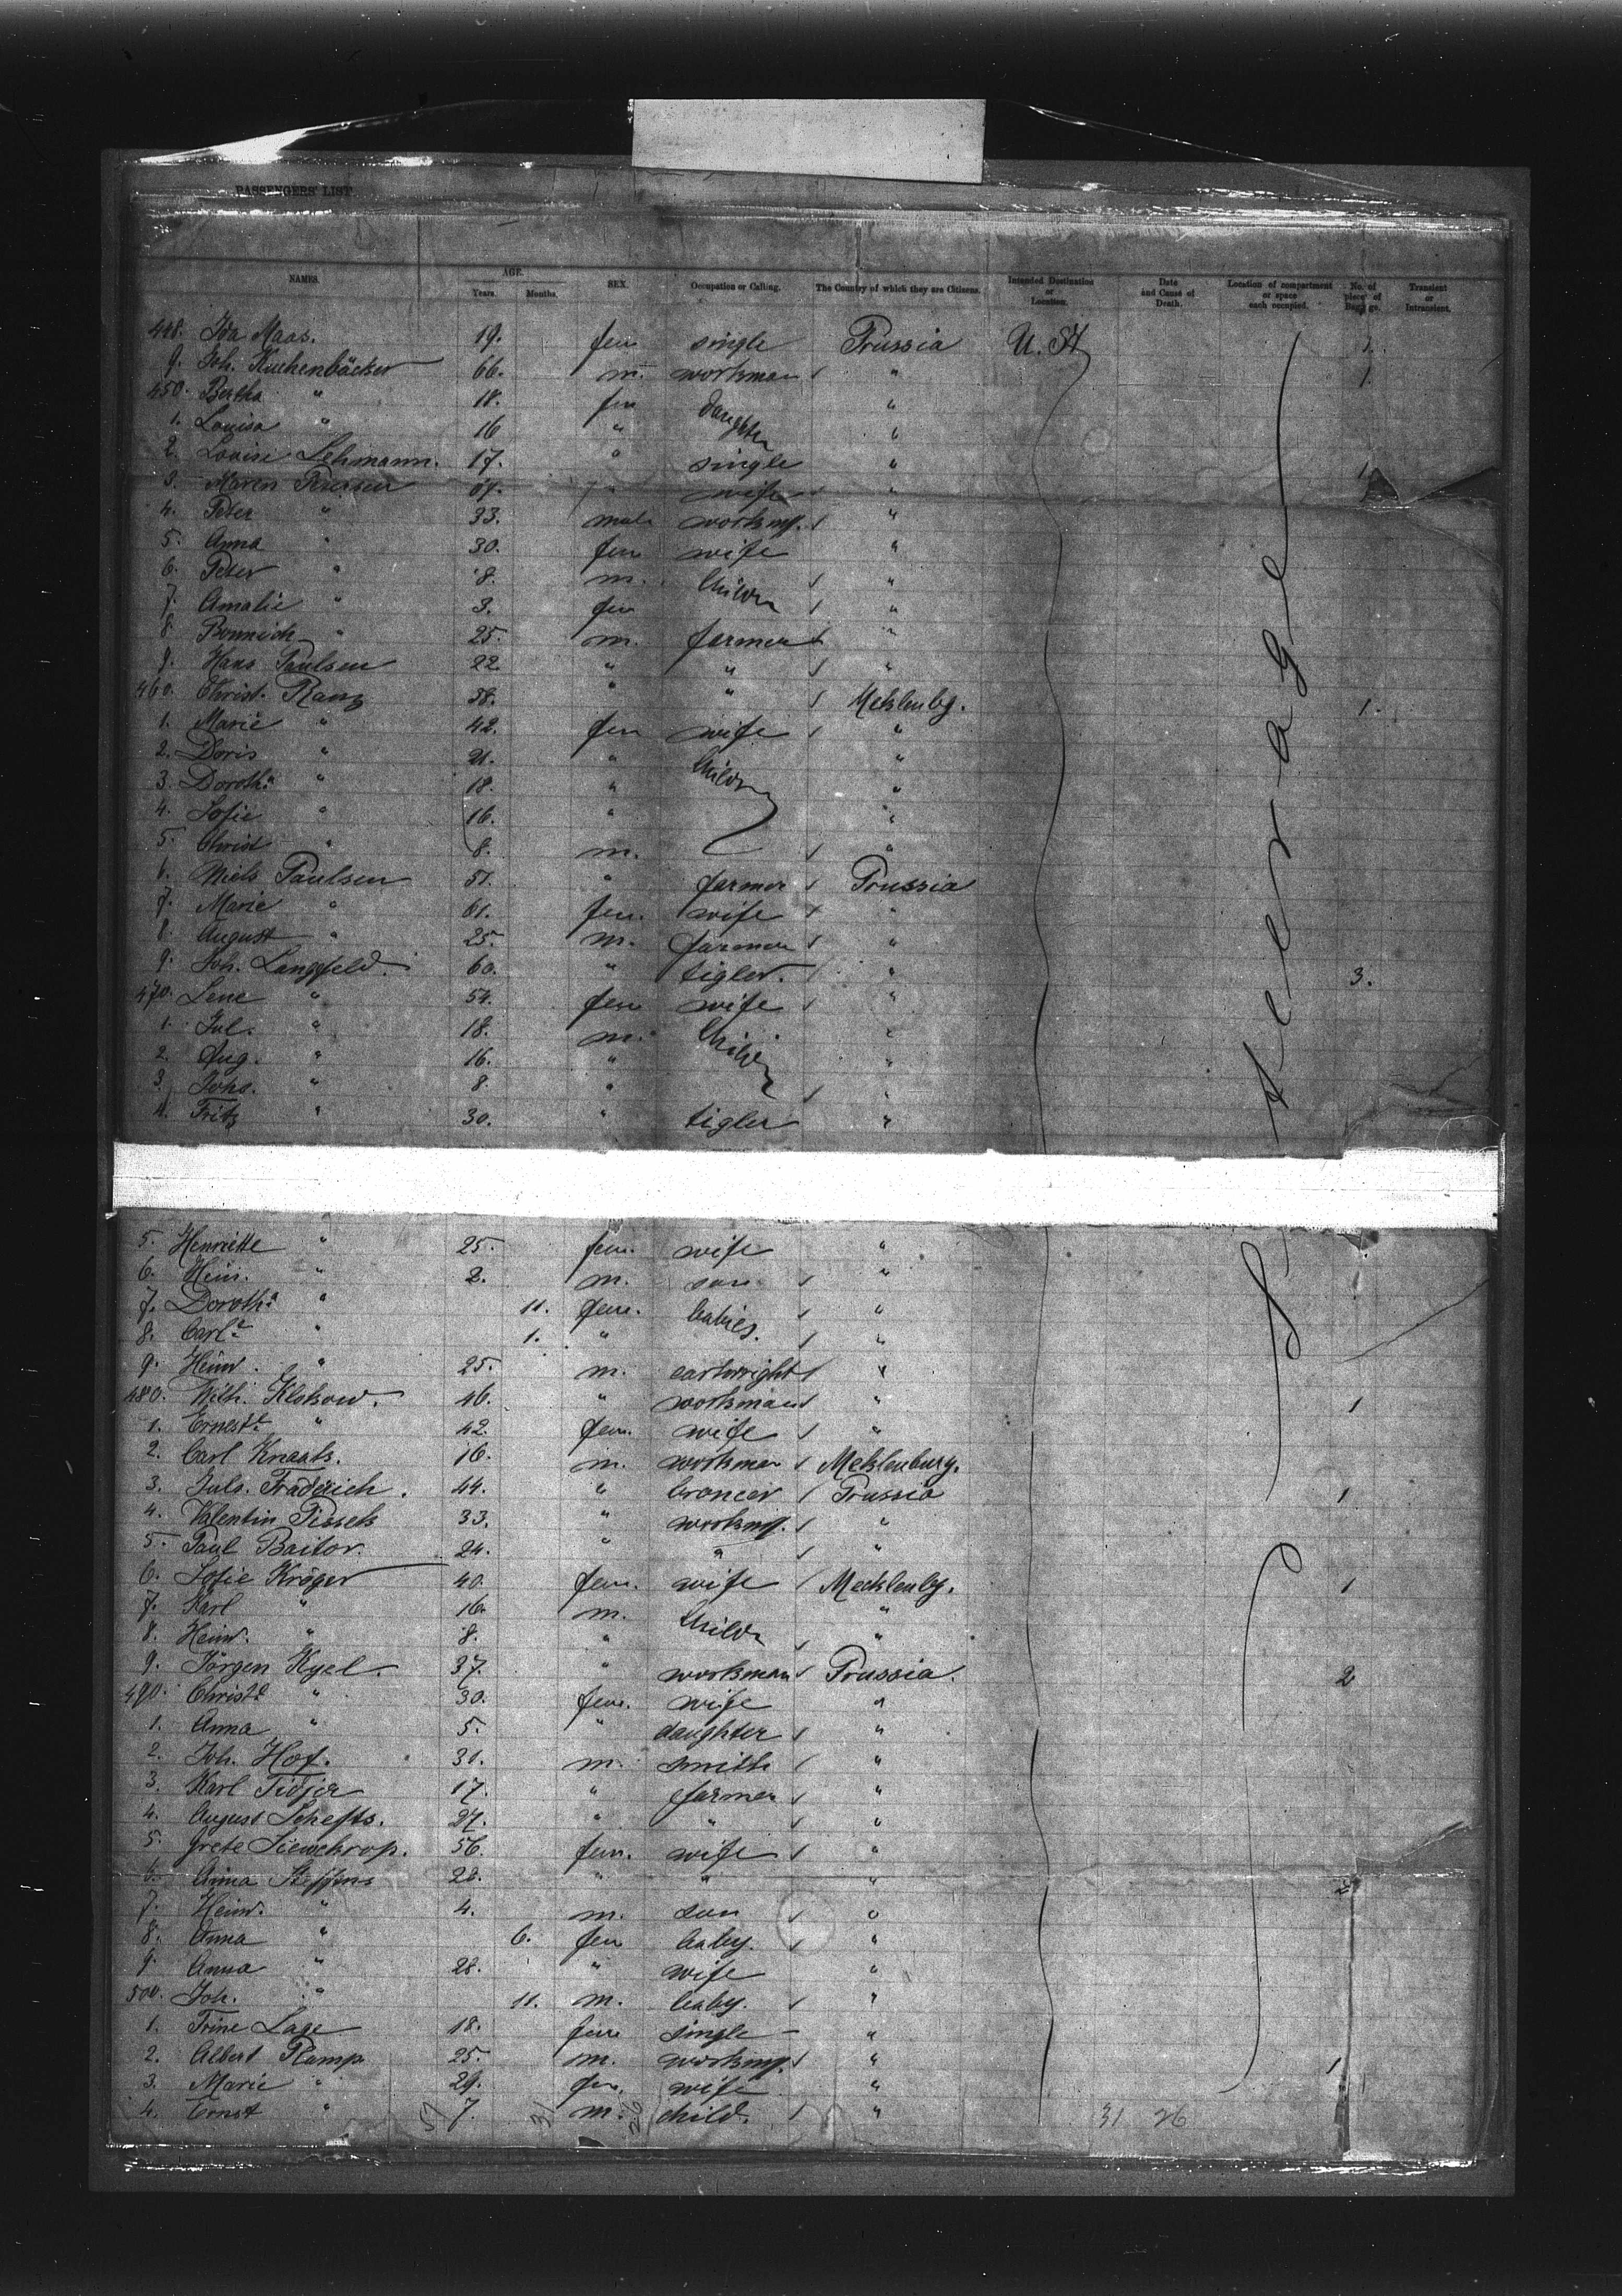 PASSENGERS' LIST
NAMES. AGE. Years. Months. SEX. Occupation or Calling. The Country of which they are Citizens. Intended Destination or Location. Date and Cause of Death. Location of compartment or space each occupied. No. of pieces of Baggage. Transient or Intransient.
448. Ida Maas. 19. fem single Prussia U. St 1.
9. Joh. Kuchenbäcker 66. m. workman " 1.
450. Bertha " 18. fem daughter "
1. Louisa " 16 " "
2. Louise Lehmann. 17. " single " 1
3. Maren " wife "
4. Peter " 33. male workmn. "
5. Anna " 30. fem wife "
6. Peter " 8. m. Childr "
7. Amalie " 3. fem "
8. " 25. m. farmer "
9. Hans Paulsen 22. " " "
460. Christ. 58. " " Meklenbg. 1.
1. Marie " 42. fem wife "
2. Doris " 21. " Childr "
3. Doroth.a " 18. " "
4. Sofie " 16. " "
5. Christ " 8. m. "
6. Niels Paulsen 51. " farmer Prussia
7. Marie " 61. fem. wife "
8. August " 25. m. farmer "
9. Joh. Langfeld. 60. " tigler. " 3.
470. Lene " 54. fem wife "
1. Jul. " 18. m. Childr "
2. Aug. " 16. " "
3. Johs. " 8. " "
4. Fritz " 30. " tigler "
Steerage
5. Henriette " 25. fem. wife "
6. Hein. " 2. m. son "
7. Doroth.a " 11. fem. babies. "
8. Carl.e " 1. " "
9. Heinr. " 25. m. cartwright "
480. Wilh. Klokow. 46. " workman " 1
1. Ernest.e " 42. fem. wife "
2. Carl Knaak. 16. m. workman Meklenburg.
3. Juls. Fraderich. 44. " Prussia 1
4. Valentin 33. " workmn. "
5. Paul Baitor. 24. " " "
6. Sofie Kröger 40. fem. wife Mecklenbg. 1
7. Karl " 16. m. Childr "
8. Heinr. " 8. " "
9. Jörgen Kyel 37. " workman Prussia 2
490. Christ.e " 30. fem. wife "
1. Anna " 5. " daughter "
2. Joh. Hof. 31. m. smith "
3. Karl Tidjer 17. " farmer "
4. August 27. " " "
5. Grete 56. fem. wife "
6. Anna Steffens 28. " " " 2
7. Heinr. " 4. m. son "
8. Anna " 6. fem baby. "
9. Anna " 28. " wife "
500. Joh. " 11. m. baby. "
1. Trine Lage 18. fem single "
2. Albert Plamp 25. m. workmn. " 1
3. Marie " 29. fem. wife "
4. Ernst " 7. m. child. "
57 31 26 31 26